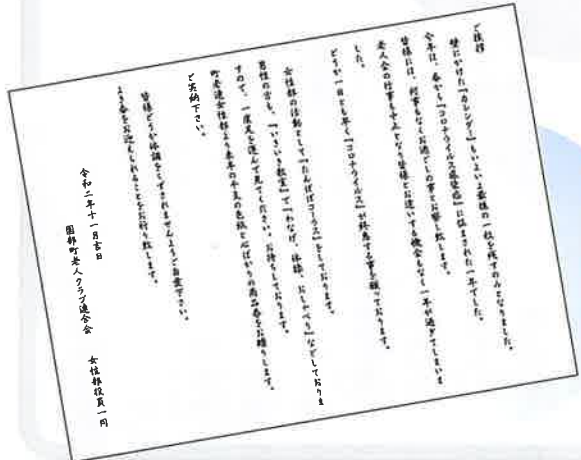 ご挨拶
壁にかけた『カレンダー』もいよいよ最後の一枚を残すのみとなりました。
今年は、春から『コロナウイルス感染症』に悩まされた一年でした。
皆様には、何事もなくお過ごしの事とお察し致します。
老人会の行事も中止となり皆様とお逢いする機会もなく一年が過ぎてしまいま
した。
どうか一日とも早く『コロナウイルス』が終息する事を願っております。
女性部の活動として『たんぽぽコーラス』をしております。
男性の方も、『いきいき教室』で『わなげ、体操、おしゃべり』などしておりま
すので、一度足を運んで見てください。お待ちしております。
町老連女性部より来年の干支の色紙と心ばかりの商品券をお贈りします。
ご笑納下さい。
皆様どうか体調をくずされませんようご自愛下さい。
よき春をお迎えしれることをお祈り致します。
令和二年十一月吉日
園部町老人クラブ連合会 女性部役員一同